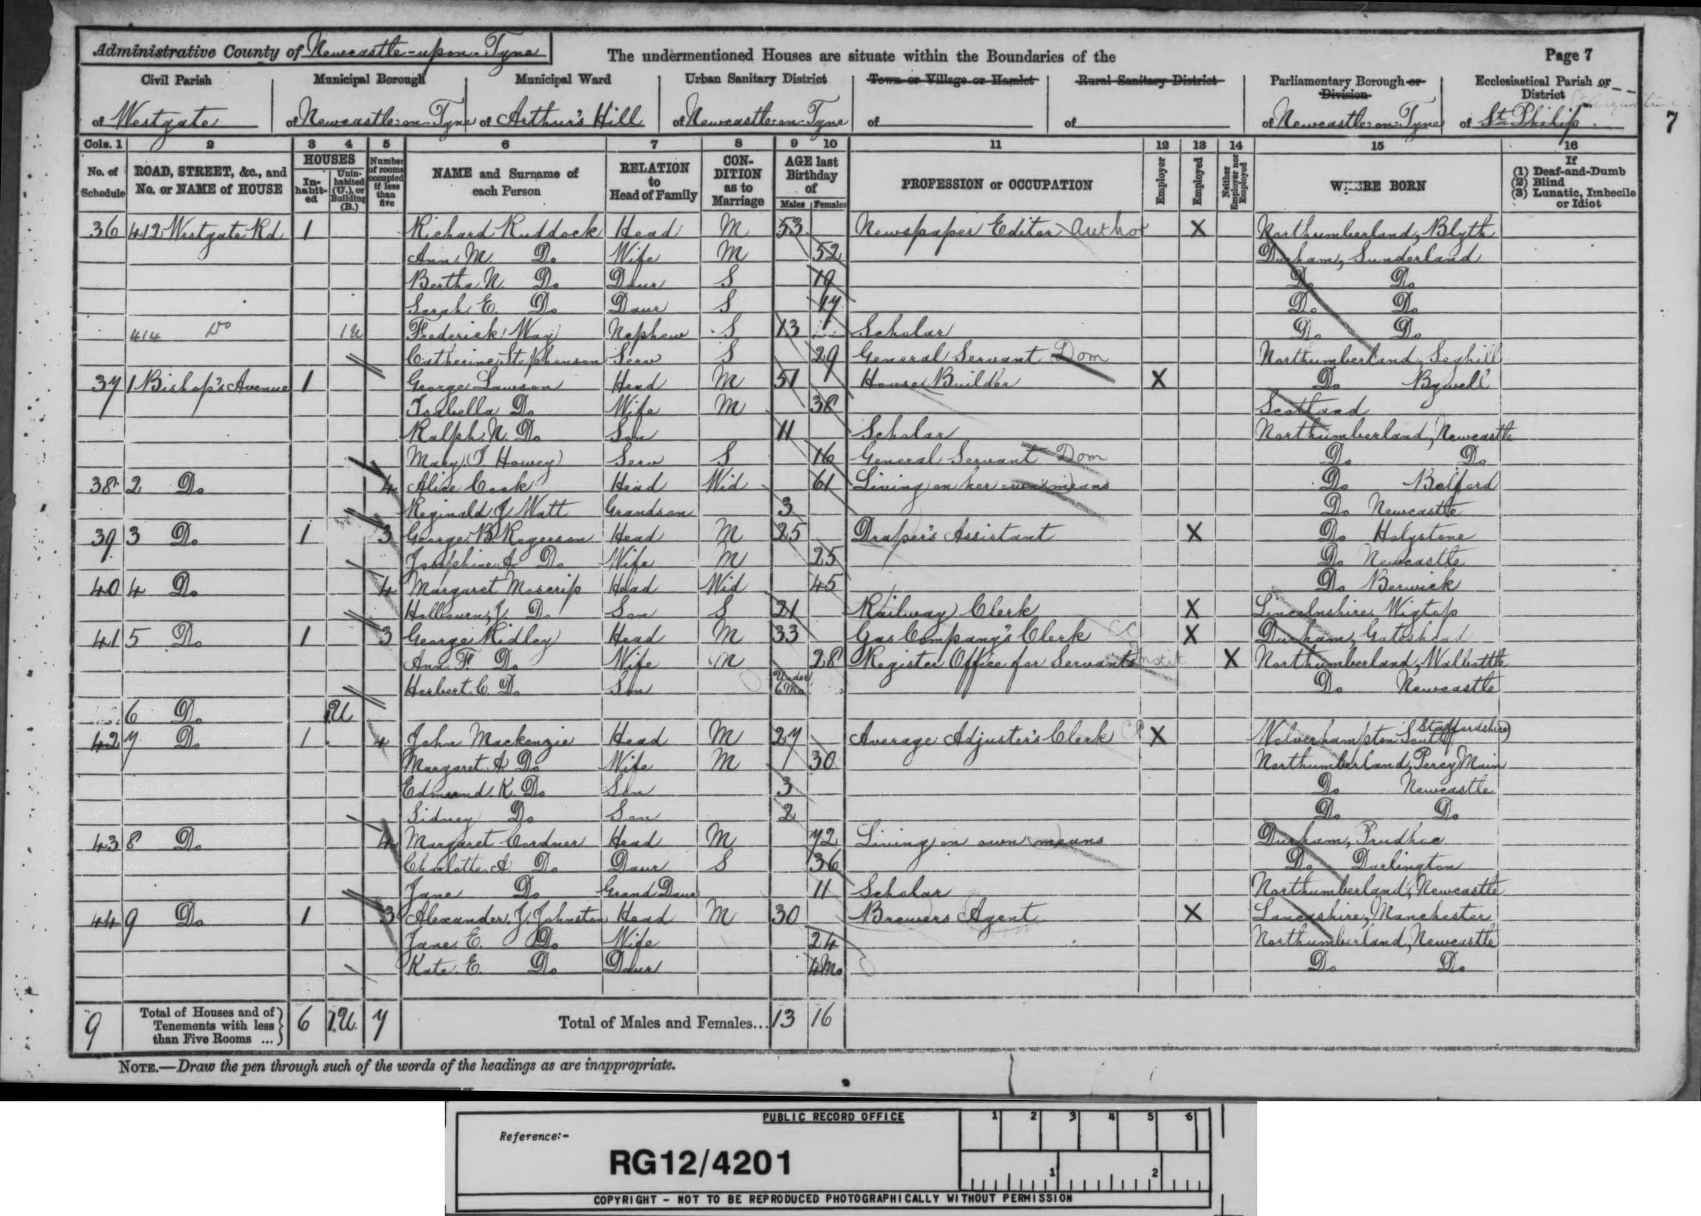 Administrative County of Newcastle-upon-Tyne
The undermentioned Houses are situate within the Boundaries of the
Page 7
Civil Parish of Westgate
Municipal Borough of Newcastle-on-Tyne
Municipal Ward of Arthur's Hill
Urban Sanitary District of Newcastle-on-Tyne
Town or Village or Hamlet of
Rural Sanitary District of
Parliamentary Borough or Division of Newcastle-on-Tyne
Ecclesiastical Parish or District of St Philip
7
Cols. 1 2 3 4 5 6 7 8 9 10 11 12 13 14 15 16
No. of Schedule
ROAD, STREET, &c., and No. or NAME of HOUSE
HOUSES
In-habit-ed
Unin-habited (U.), or Building (B.)
Number of rooms occupied if less than five
NAME and Surname of each Person
RELATION to Head of Family
CON-DITION as to Marriage
AGE last Birthday of
Males Females
PROFESSION or OCCUPATION
Employer
Employed
Neither Employer nor Employed
WHERE BORN
If (1) Deaf-and-Dumb (2) Blind (3) Lunatic, Imbecile or Idiot
36 412 Westgate Rd 1 Richard Ruddock Head M 53 Newspaper Editor Author X Northumberland, Blyth
Ann M. Do Wife M 52 Durham, Sunderland
Bertha N. Do Daur S 19 Do Do
Sarah E. Do Daur S 17 Do Do
414 Do 1u Frederick May Nephew S 13 Scholar Do Do
Catherine Stephenson Serv S 29 General Servant Dom Northumberland Seghill
37 1 Bishop's Avenue 1 George Lawson Head M 51 House Builder X Do Bywell
Isabella Do Wife M 38 Scotland
Ralph N. Do Son 11 Scholar Northumberland, Newcastle
Mary J Howey Serv S 16 General Servant Dom Do Do
38 2 Do 4 Alice Cook Head Wid 61 Living on her own means Do Belford
Reginald J Watt Grandson 3 Do Newcastle
39 3 Do 1 3 George B Rogerson Head M 25 Draper's Assistant X Do Holystone
Josephine A Do Wife M 25 Do Newcastle
40 4 Do 4 Margaret Moscrip Head Wid 45 Do Berwick
J Do Son S 21 Railway Clerk X Lincolnshire
41 5 Do 1 3 George Ridley Head M 33 Gas Company's Clerk X Durham, Gateshead
Ann F Do Wife M 28 Register Office for Servants X Northumberland, Walbottle
Herbert C. Do Son Under 6 Mo Do Newcastle
6 Do U
42 7 Do 1 4 John Mackenzie Head M 27 Average Adjuster's Clerk X Wolverhampton Staffordshire
Margaret A Do Wife M 30 Northumberland, Percy Main
Edmund K Do Son 3 Do Newcastle
Sidney Do Son 2 Do Do
43 8 Do 4 Margaret Cordner Head M 72 Living on own means Durham, Prudhoe
Charlotte A Do Daur S 36 Do Darlington
Jane Do Grand Daur 11 Scholar Northumberland, Newcastle
44 9 Do 1 3 Alexander J Johnston Head M 30 Brewers Agent X Lancashire, Manchester
Jane E. Do Wife 24 Northumberland, Newcastle
Kate E. Do Daur Mo Do Do
9 Total of Houses and of Tenements with less than Five Rooms ... 6 U 7 Total of Males and Females... 13 16
NOTE.—Draw the pen through such of the words of the headings as are inappropriate.
PUBLIC RECORD OFFICE
1 2 3 4 5 6
Reference:-
RG12/4201
1 2
COPYRIGHT - NOT TO BE REPRODUCED PHOTOGRAPHICALLY WITHOUT PERMISSION